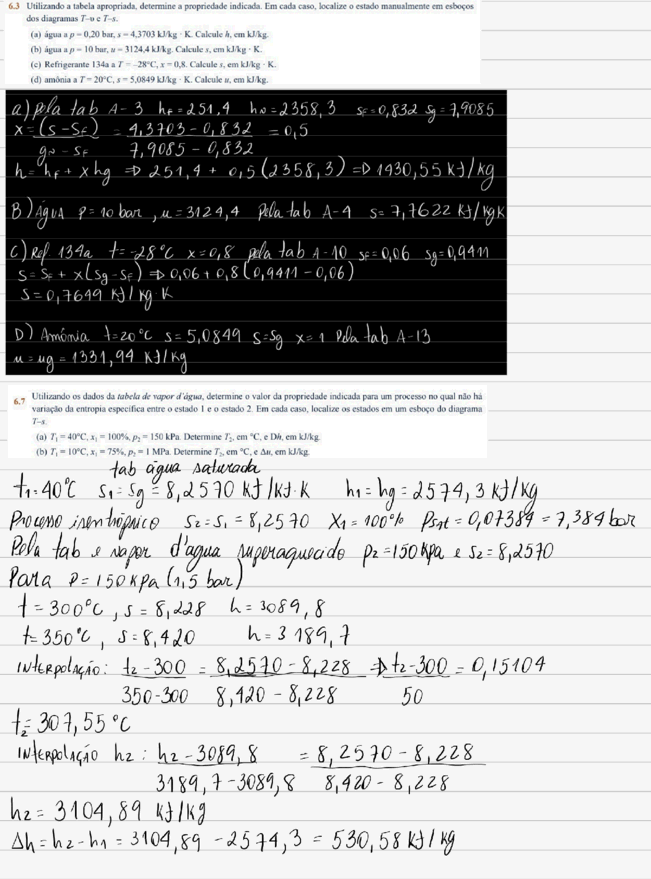 6.3 Utilizando a tabela apropriada, determine a propriedade indicada. Em cada caso, localize o estado manualmente em esboços
dos diagramas T–υ e T–s.
(a) água a p = 0,20 bar, s = 4,3703 kJ/kg · K. Calcule h, em kJ/kg.
(b) água a p = 10 bar, u = 3124,4 kJ/kg. Calcule s, em kJ/kg · K.
(c) Refrigerante 134a a T = –28°C, x = 0,8. Calcule s, em kJ/kg · K.
(d) amônia a T = 20°C, s = 5,0849 kJ/kg · K. Calcule u, em kJ/kg.
a) Pela tab A-3 hf=251,4 hv=2358,3 sf=0,832 sg=7,9085
x=(s-sf) = 4,3703-0,832 = 0,5
gv-sf 7,9085-0,832
h=hf+xhg ⇒ 251,4+0,5(2358,3) ⇒ 1430,55 kJ/kg
B) Água P=10 bar, u=3124,4 Pela tab A-4 s=7,7622 KJ/KgK
C) Ref. 134a t=-28°C x=0,8 pela tab A-10 sf=0,06 sg=0,9411
s=sf+x(sg-sf) ⇒ 0,06+0,8(0,9411-0,06)
s=0,7649 KJ/kg·K
D) Amônia t=20°C s=5,0849 s=sg x=1 Pela tab A-13
u=ug=1331,94 KJ/Kg
6.7 Utilizando os dados da tabela de vapor d'água, determine o valor da propriedade indicada para um processo no qual não há
variação da entropia específica entre o estado 1 e o estado 2. Em cada caso, localize os estados em um esboço do diagrama
T–s.
(a) T₁ = 40°C, x₁ = 100%, p₂ = 150 kPa. Determine T₂, em °C, e Dh, em kJ/kg.
(b) T₁ = 10°C, x₁ = 75%, p₂ = 1 MPa. Determine T₂, em °C, e Δu, em kJ/kg.
tab água saturada
t1=40°C s1=sg=8,2570 KJ/KJ·K h1=hg=2574,3 KJ/Kg
Processo isentrópico s2=s1=8,2570 X1=100% Psat=0,07384=7,384bar
Pela tab e vapor d'água superaquecido p2=150 Kpa e s2=8,2570
Para P=150KPa (1,5 bar)
t=300°C, s=8,228 h=3089,8
t=350°C, s=8,420 h=3189,7
interpolação: t2-300 = 8,2570-8,228 ⇒ t2-300 = 0,15104
350-300 8,420-8,228 50
t2=307,55°C
interpolação h2: h2-3089,8 = 8,2570-8,228
3189,7-3089,8 8,420-8,228
h2=3104,89 KJ/Kg
Δh=h2-h1=3104,89-2574,3=530,58 KJ/Kg